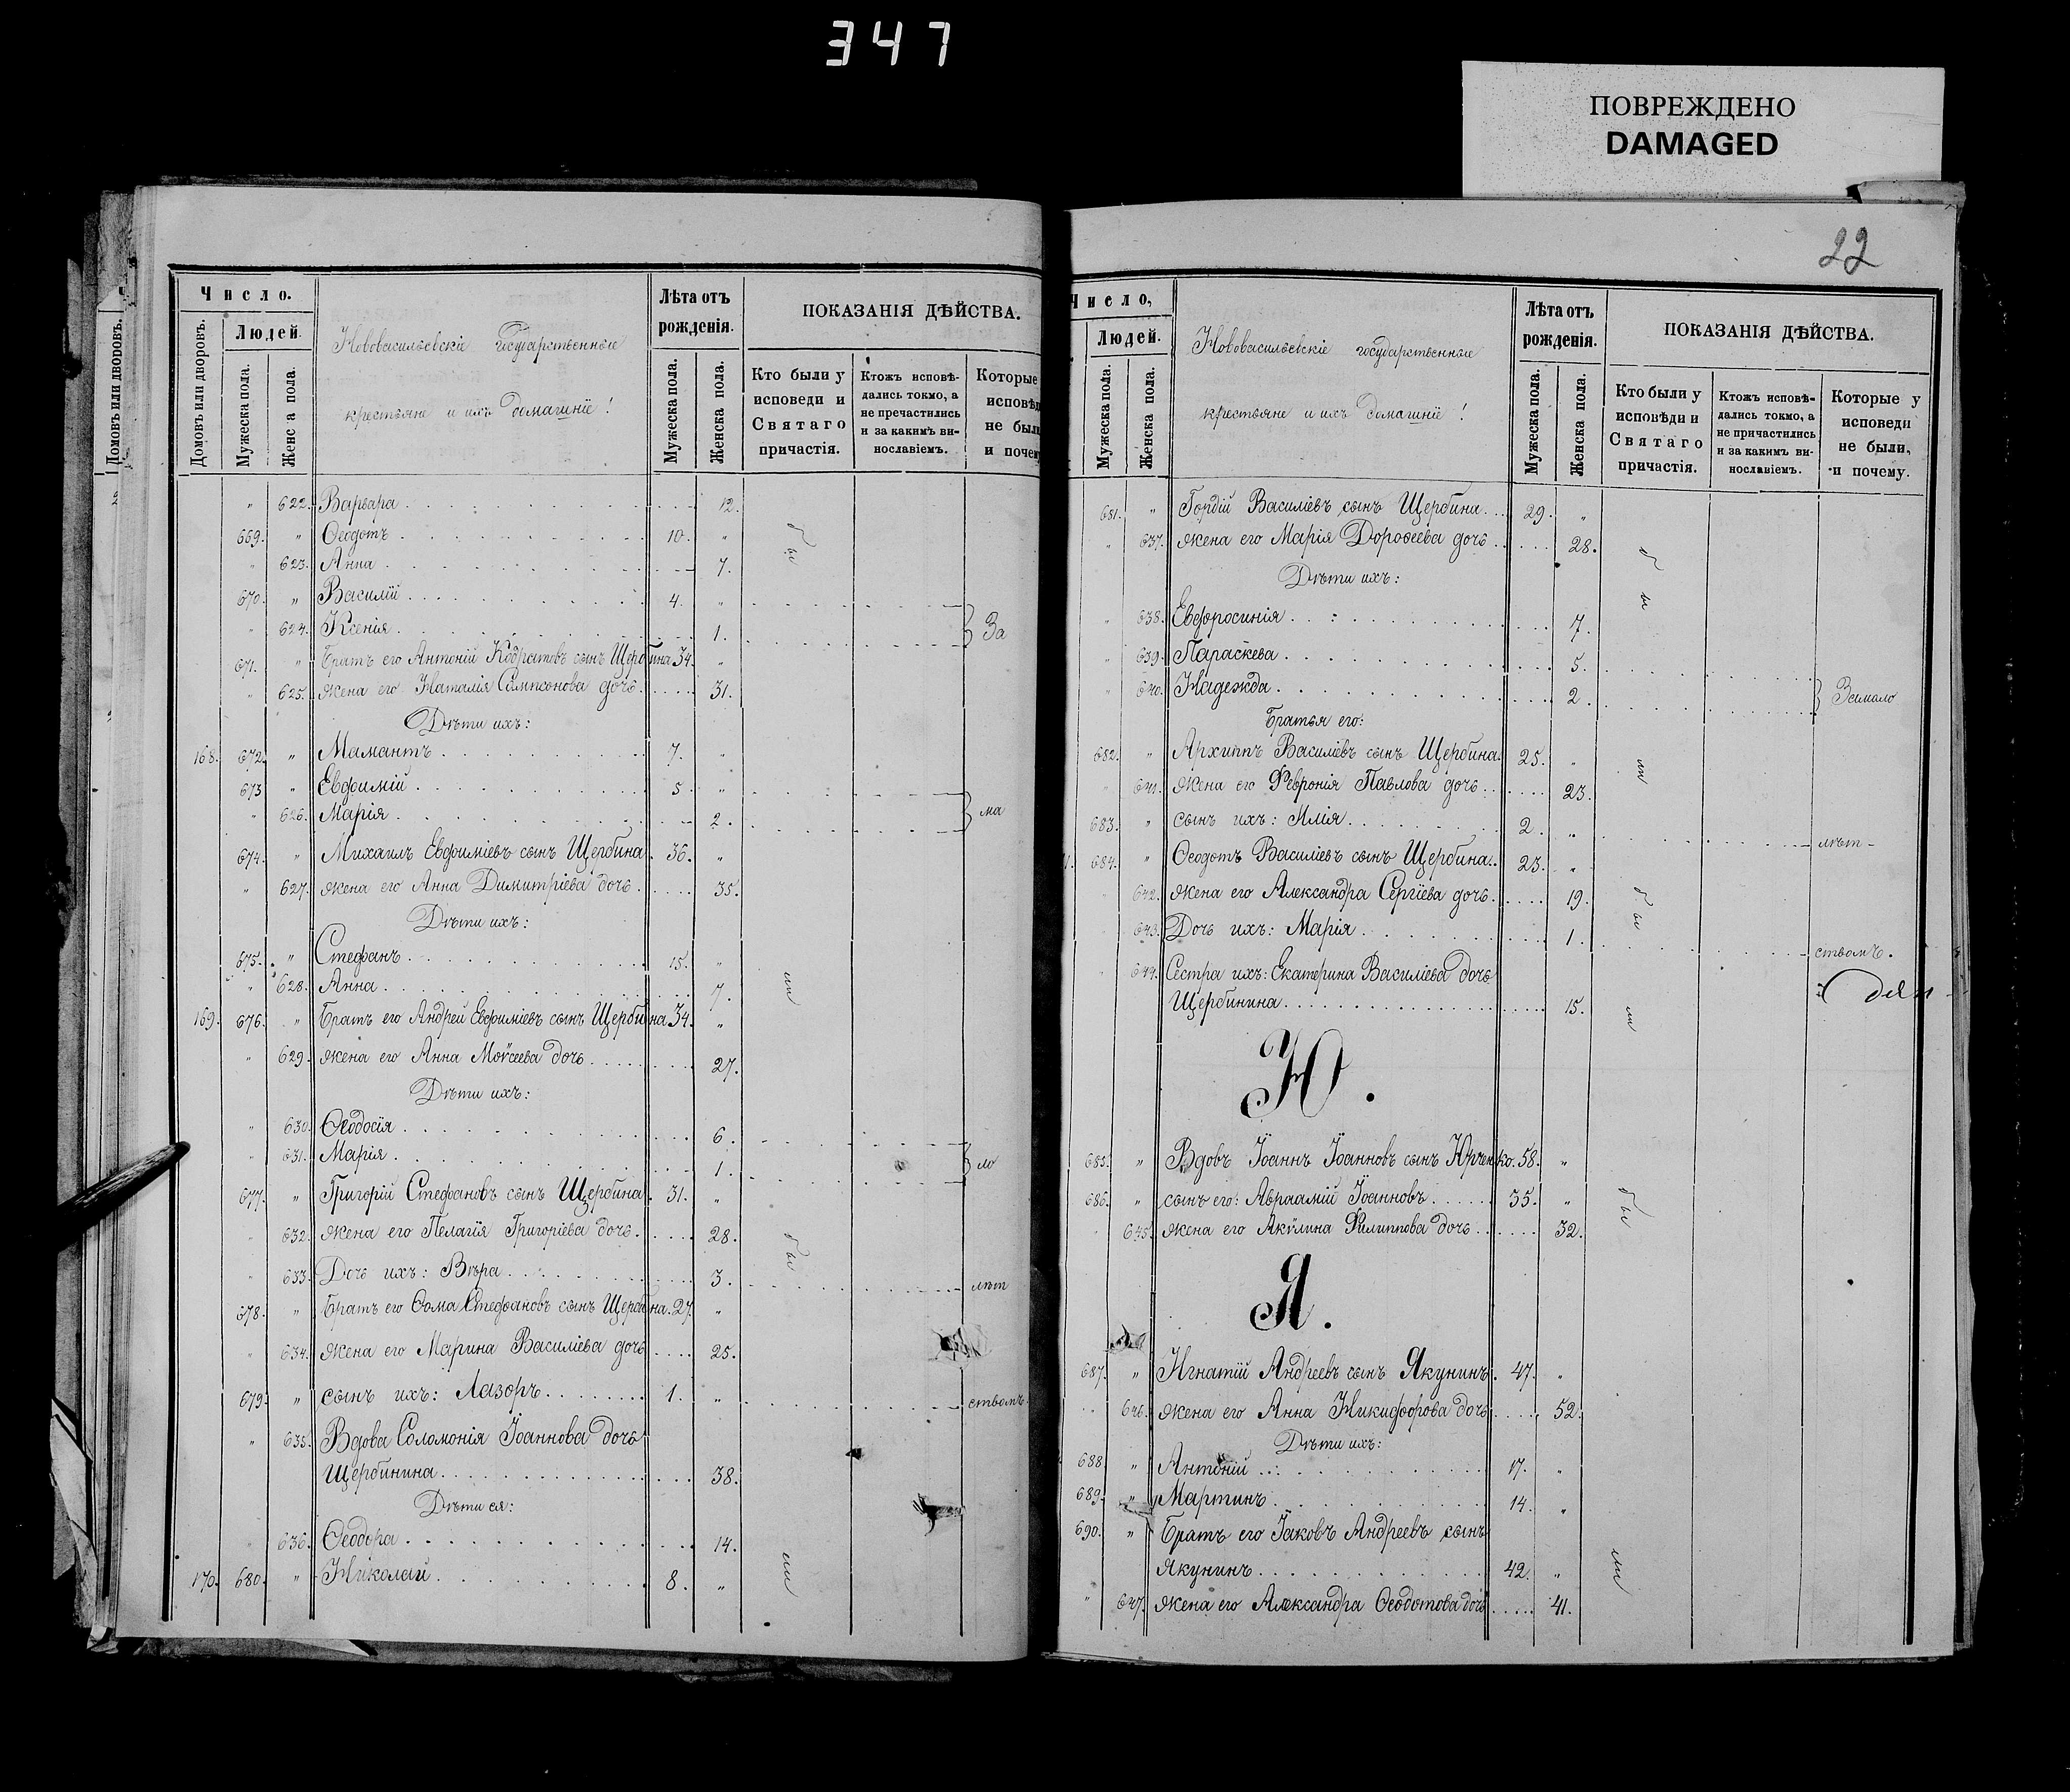 347
ПОВРЕЖДЕНО
DAMAGED
Домовъ или дворовъ.
Число.
Людей.
Домовъ или дворовъ.
Мужеска пола.
Женска пола.
Нововасильевскіе Государственные
крестьяне и ихъ домашніе!
Лѣта отъ
рожденія.
Мужеска пола.
Женска пола.
ПОКАЗАНІЯ ДѢЙСТВА.
Кто были у
исповеди и
Святаго
причастія.
Ктожъ исповѣ-
дались токмо, а
не пречастились
и за какимъ ви-
нославіемъ.
Которые
исповѣд
не были
и почему
" 622. Варвара 12.
669. " Ѳеодотъ 10. "
" 623. Анна 7.
670. " Василій 4. "
" 624. Ксенія 1. За
671. " Братъ его Антоній Кодратовъ сынъ Щербина 34. "
" 625. жена его Наталія Сампсонова дочь 31.
Дѣти ихъ:
168. 672. " Мамантъ 7. "
673 " Евфимій 5 "
" 626. Марія 2. ма
674. " Михаилъ Евфиміевъ сынъ Щербина 36. "
" 627. жена его Анна Димитріева дочь 35.
Дѣти ихъ:
675. " Стефанъ 15. "
" 628. Анна 7.
169. 676. " Братъ его Андрей Евфиміевъ сынъ Щербина 34. "
" 629. жена его Анна Моѵсеева дочь 27.
Дѣти ихъ:
" 630. Ѳеодосія 6.
" 631. Марія 1. ло
677. " Григорій Стефановъ сынъ Щербина 31. "
" 632. жена его Пелагія Григоріева дочь 28.
" 633. Дочь ихъ: Вѣра 3. лѣт
678. " Братъ его Ѳома Стефановъ сынъ Щербина 27. "
" 634. жена его Марина Василіева дочь 25.
679. " сынъ ихъ: Лазоръ 1. " ствомъ.
" 635. Вдова Соломонія Іоаннова дочь
Щербинина 38.
Дѣти ея:
636. Ѳеодора 14.
170. 680. " Николай 8. "
бы
ли
бы
ли
22
Число,
Людей.
Мужеска пола.
Женска пола.
Нововасильевскіе государственные
крестьяне и ихъ домашніе!
Лѣта отъ
рожденія.
Мужеска пола.
Женска пола.
ПОКАЗАНІЯ ДѢЙСТВА.
Кто были у
исповѣди и
Святаго
причастія.
Ктожъ исповѣ-
дались токмо, а
не причастились
и за какимъ ви-
нославіемъ.
Которые у
исповеди
не были,
и почему.
681. " Гордій Василіевъ сынъ Щербина 29. "
" 637. жена его Марія Дороѳеева дочь 28.
Дѣти ихъ:
" 638. Евфросинія 7.
" 639. Параскева 5.
" 640. Надежда 2. Зсимало
Братья его:
682. " Архиппъ Василіевъ сынъ Щербина. 25. "
" 641. жена его Февронія Павлова дочь 23.
683. " сынъ ихъ: Илія 2. " лѣт-
684. " Ѳеодотъ Василіевъ сынъ Щербина. 23. "
642. жена его Александра Сергіева дочь 19.
643. Дочь ихъ: Марія 1. ствомъ.
" 644. Сестра ихъ: Екатерина Василіева дочь
Щербинина 15.
Ю.
685. " Вдовъ Іоаннъ Іоанновъ сынъ Юрченко. 58. "
686. " сынъ его: Авраамій Іоанновъ 35. "
" 645. жена его Акѵлина Филиппова дочь 32.
Я.
687. " Игнатій Андреевъ сынъ Якунинъ. 47. "
646. жена его Анна Никифорова дочь 52.
Дѣти ихъ:
688 " Антоній 17. "
689. " Мартинъ 14. "
690. " Братъ его Іаковъ Андреевъ сынъ
Якунинъ 42. "
" 647. жена его Александра Ѳеодотова дочь 41.
бы
ли
бы
ли
бы
ли